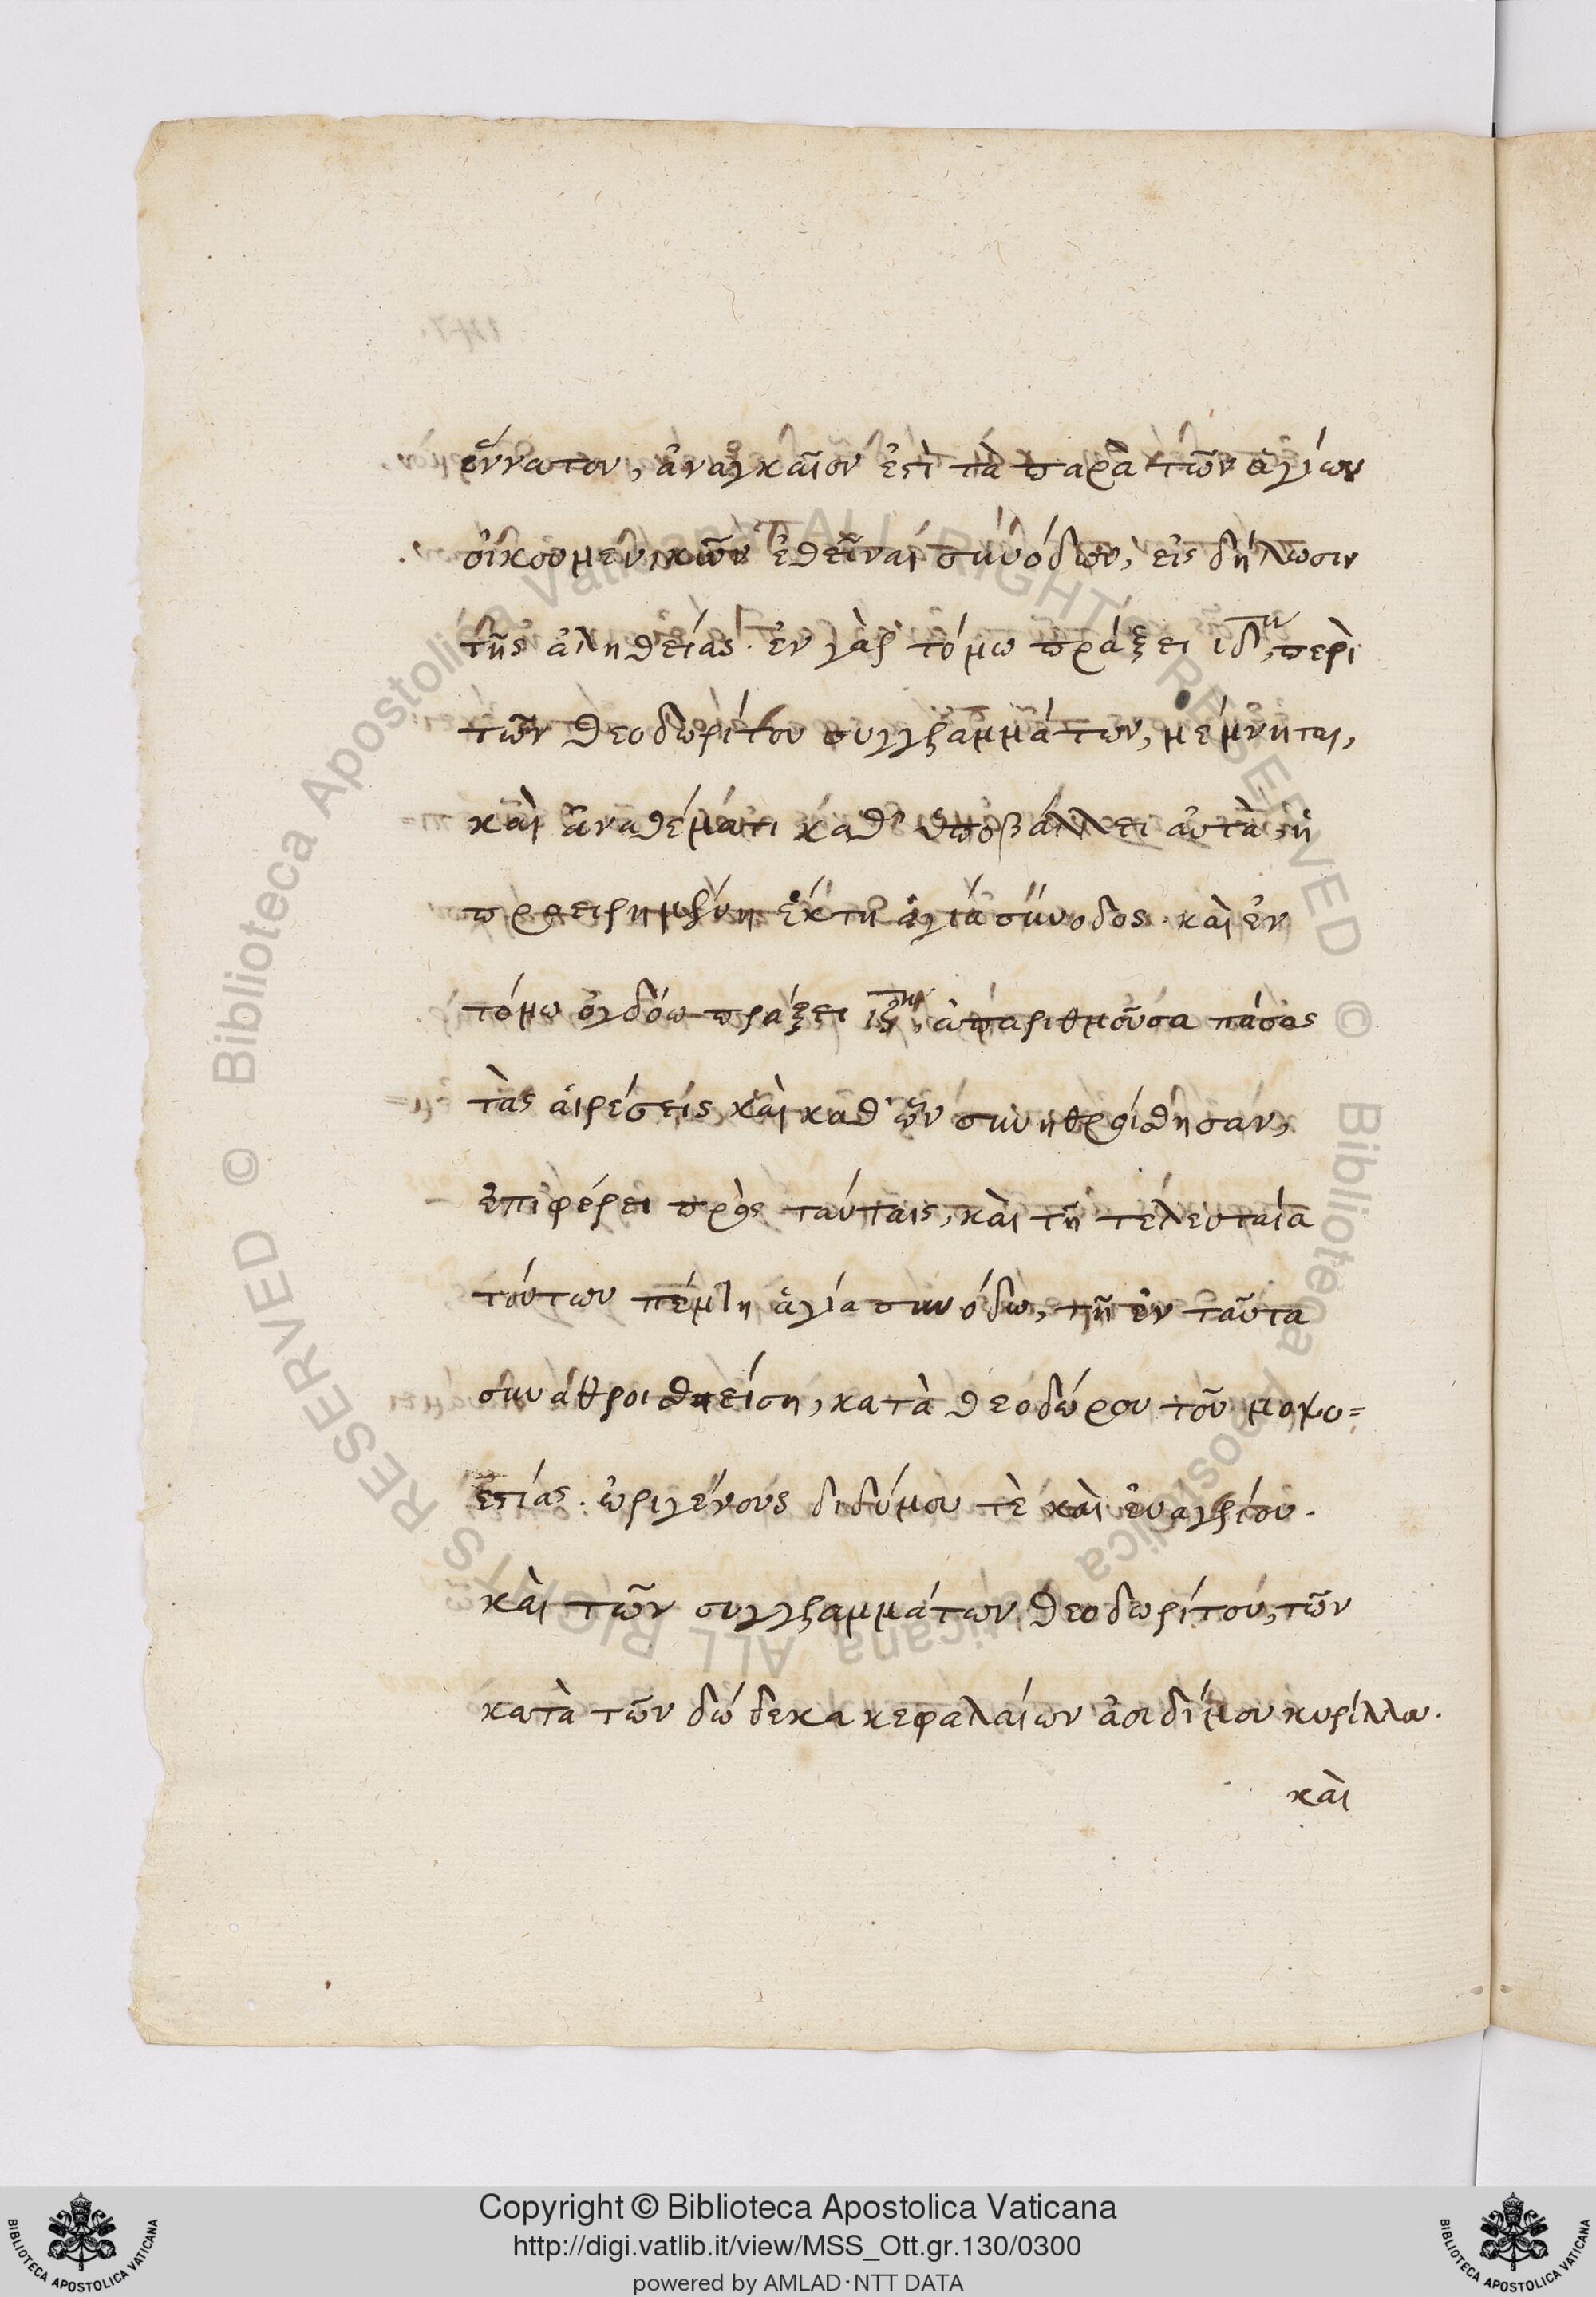 εὔνατον, ἀναγκαῖον ἐστὶ τὰ παρὰ τῶν ἁγίων
οἰκουμενικῶν ἐθεῖναι συνόδων, εἰς δήλωσιν
τῆς ἀληθείας· ἐν γὰρ τόμω πράξει ιδ^η, περὶ
τῶν θεοδωρίτου συγγραμμάτων, μέμνηται,
καὶ ἀναθέματι καθ' ὑποβάλλει αὐτὰ, ἡ
προειρημένη ἕκτη ἁγία σύνοδος· καὶ ἐν
τόμω ὀγδόω πράξει ιζ^η, ἀπαριθμοῦσα πάσας
τὰς αἱρέσεις καὶ καθ' ὧν συνηθροίσθησαν,
ἐπιφέρει πρὸς ταύταις, καὶ τῆ τελευταία
τούτων πέμπτη ἁγία συνόδω, τῆ ἐν ταῦτα
συναθροισθείση, κατὰ θεοδώρου τοῦ μοψου=
εστίας· ὠριγένους διδύμου τὲ καὶ εὐαγρίου·
καὶ τῶν συγγραμμάτων θεοδωρίτου, τῶν
κατὰ τῶν δώδεκα κεφαλαίων ἀοιδίμου κυρίλλου·
καὶ
Copyright © Biblioteca Apostolica Vaticana
http://digi.vatlib.it/view/MSS_Ott.gr.130/0300
powered by AMLAD·NTT DATA
BIBLIOTECA APOSTOLICA VATICANA
BIBLIOTECA APOSTOLICA VATICANA
© Biblioteca Apostolica Vaticana ALL RIGHTS RESERVED © Biblioteca Apostolica Vaticana ALL RIGHTS RESERVED